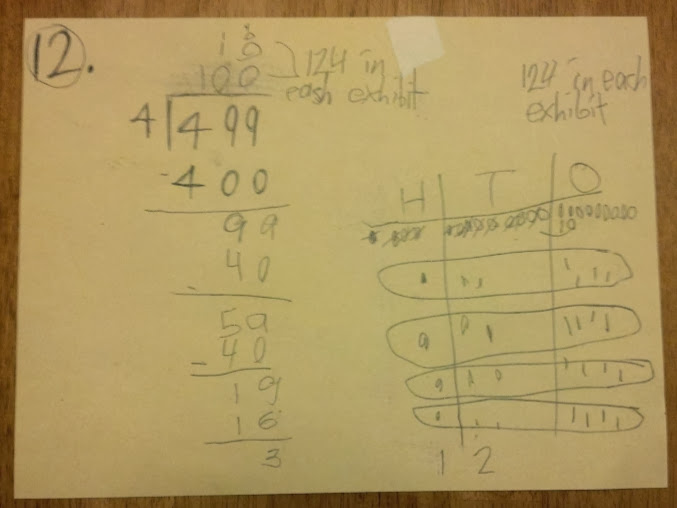 12.
10
100
124 in
each exhibit
4 499
-400
99
- 40
59
- 40
19
16
3
124 in each
exhibit
H T O
1 2